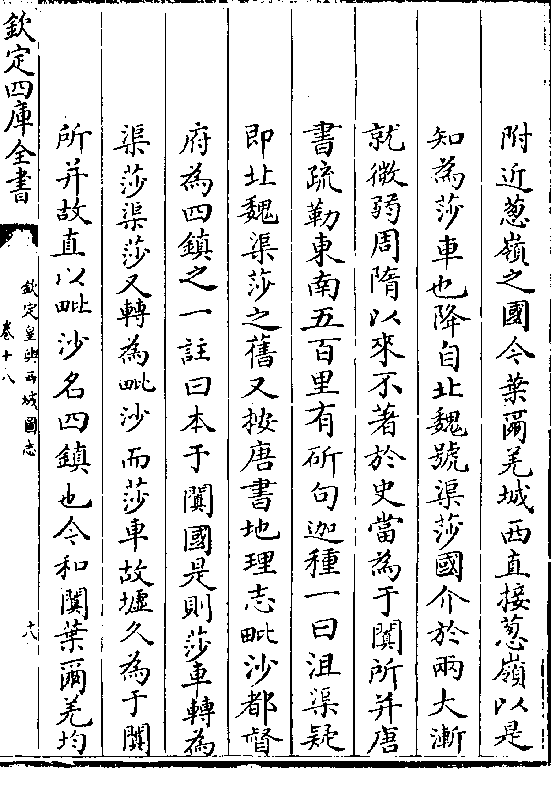 附近蔥嶺之國今葉爾羌城西直接蔥嶺以是
知為莎車也降自北魏號渠莎國介於兩大漸
就微弱周隋以來不著於史當為于闐所并唐
書疏勒東南五百里有斫句迦種一曰沮渠疑
即北魏渠莎之舊又按唐書地理志毗沙都督
府為四鎮之一註曰本于闐國是則莎車轉為
渠莎渠莎又轉為毗沙而莎車故墟久為于闐
所并故直以毗沙名四鎮也今和闐葉爾羌均
欽定四庫全書
欽定皇輿西域圖志
卷十八
十八